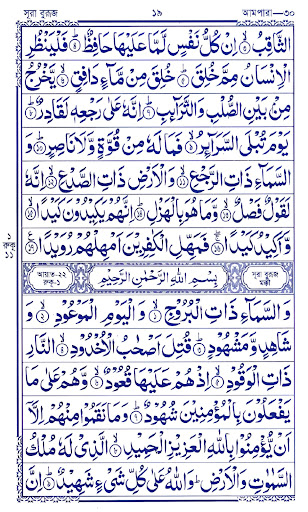 সূরা বুরূজ ১৯ আমপারা—৩০
الثَّاقِبُ ۝ اِنْ كُلُّ نَفْسٍ لَّمَّا عَلَيْهَا حَافِظٌ ۝ فَلْيَنْظُرِ
الْاِنْسَانُ مِمَّ خُلِقَ ۝ خُلِقَ مِنْ مَّآءٍ دَافِقٍ ۝ يَّخْرُجُ
مِنْۢ بَيْنِ الصُّلْبِ وَالتَّرَآئِبِ ۝ اِنَّهٗ عَلٰى رَجْعِهٖ لَقَادِرٌ ۝
يَوْمَ تُبْلَى السَّرَآئِرُ ۝ فَمَا لَهٗ مِنْ قُوَّةٍ وَّلَا نَاصِرٍ ۝ وَ
السَّمَآءِ ذَاتِ الرَّجْعِ ۝ وَالْاَرْضِ ذَاتِ الصَّدْعِ ۝ اِنَّهٗ
لَقَوْلٌ فَصْلٌ ۝ وَّمَا هُوَ بِالْهَزْلِ ۝ اِنَّهُمْ يَكِيْدُوْنَ كَيْدًا ۝
وَّاَكِيْدُ كَيْدًا ۝ فَمَهِّلِ الْكٰفِرِيْنَ اَمْهِلْهُمْ رُوَيْدًا ۝
১
রুকু
১১
সূরা বুরূজ
মক্কী
بِسْمِ اللّٰهِ الرَّحْمٰنِ الرَّحِيْمِ
আয়াত-২২
রুকু-১
وَالسَّمَآءِ ذَاتِ الْبُرُوْجِ ۝ وَالْيَوْمِ الْمَوْعُوْدِ ۝ وَ
شَاهِدٍ وَّمَشْهُوْدٍ ۝ قُتِلَ اَصْحٰبُ الْاُخْدُوْدِ ۝ النَّارِ
ذَاتِ الْوَقُوْدِ ۝ اِذْ هُمْ عَلَيْهَا قُعُوْدٌ ۝ وَّهُمْ عَلٰى مَا
يَفْعَلُوْنَ بِالْمُؤْمِنِيْنَ شُهُوْدٌ ۝ وَمَا نَقَمُوْا مِنْهُمْ اِلَّآ
اَنْ يُّؤْمِنُوْا بِاللّٰهِ الْعَزِيْزِ الْحَمِيْدِ ۝ الَّذِيْ لَهٗ مُلْكُ
السَّمٰوٰتِ وَالْاَرْضِ ؕ وَاللّٰهُ عَلٰى كُلِّ شَيْءٍ شَهِيْدٌ ۝ اِنَّ